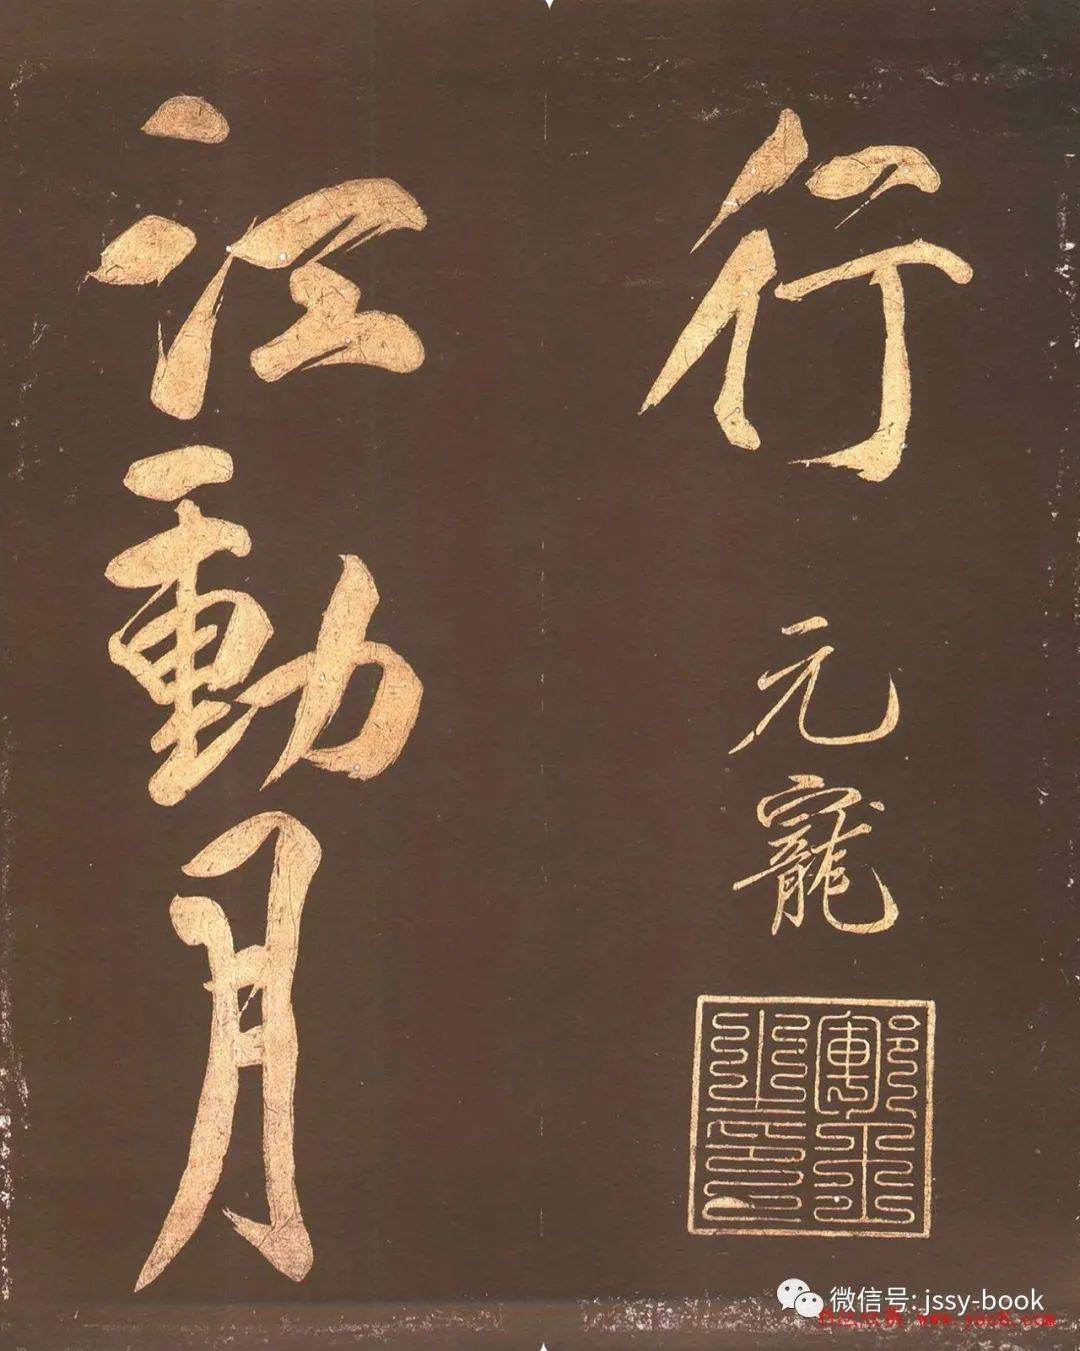 行
元寵
江動月
微信号: jssy-book